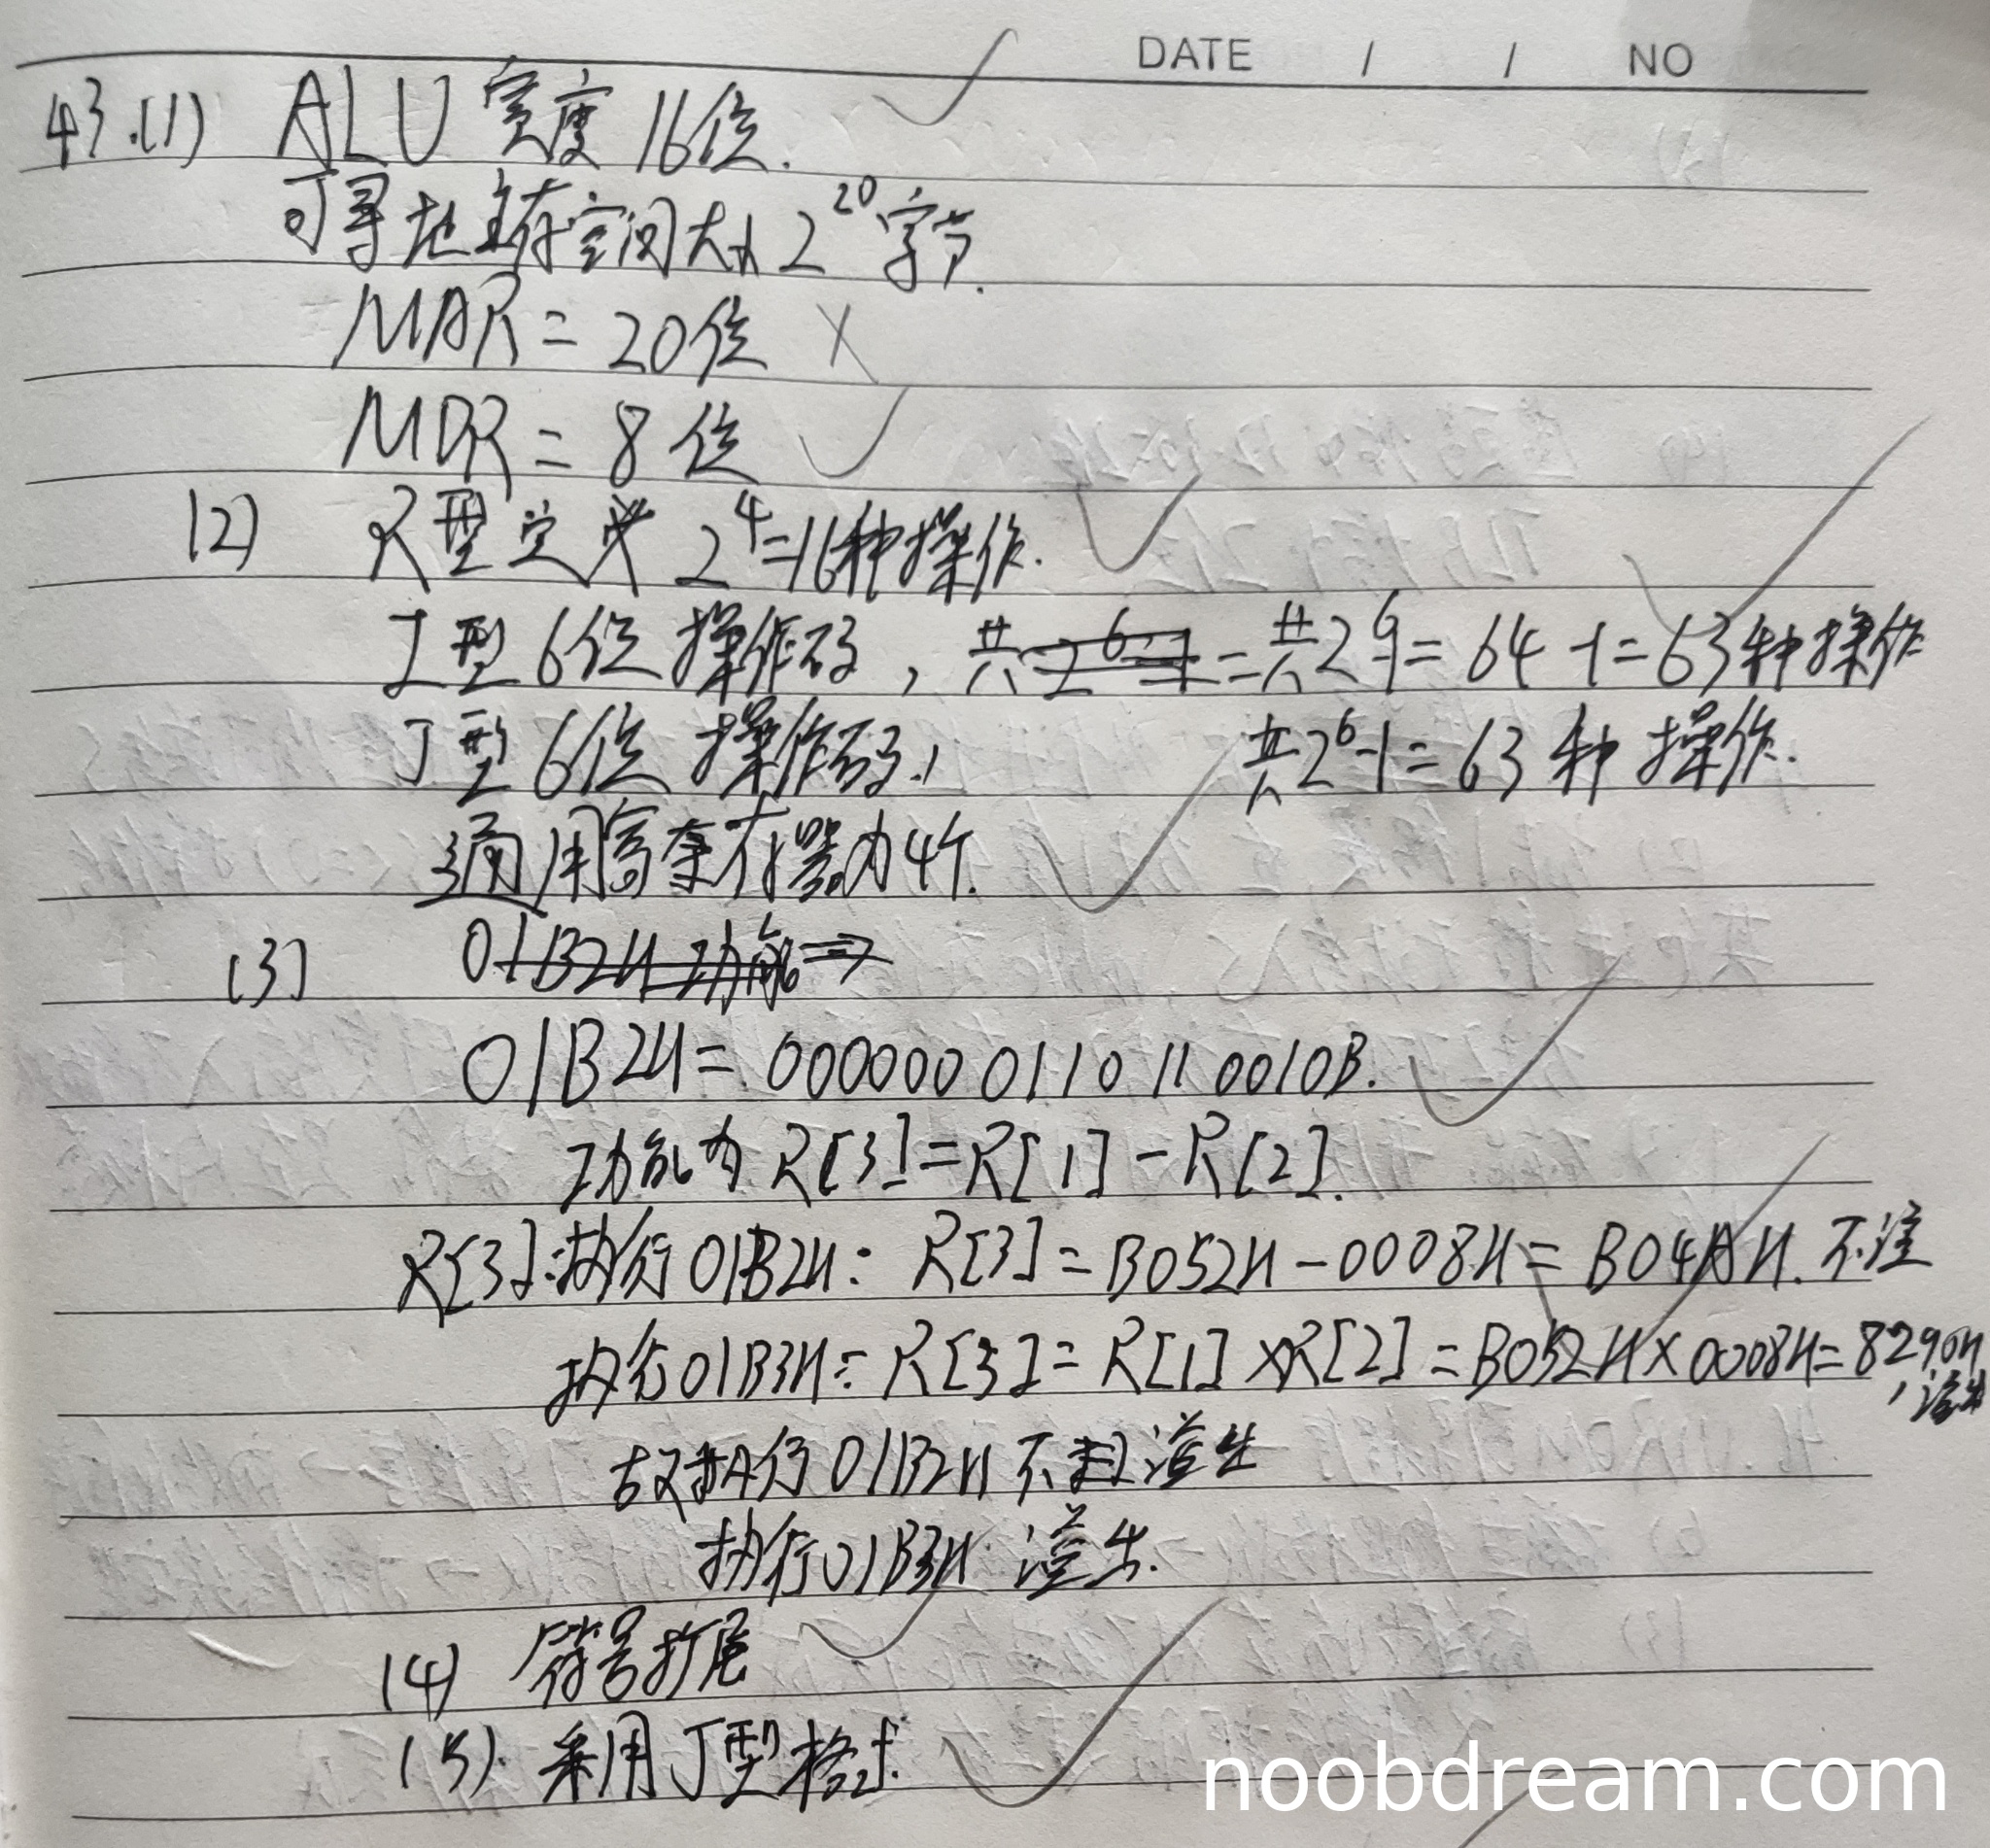 DATE / / NO
43.(1) ALU宽度16位.
可寻址主存空间大小2^20字节.
MAR = 20位
MDR = 8位
(2) R型定义 2^4=16种操作.
I型6位操作码, 共2^6-1 = 共2^6 = 64-1=63种操作
J型6位操作码, 共2^6-1=63种操作.
通用寄存器为4个.
(3) 01B2H功能⇒
01B2H = 000000 01 10 11 0010B.
功能为 R[3]=R[1]-R[2].
R[3]:执行01B2H: R[3]=B052H-0008H=B04AH. 不溢
执行01B3H: R[3]=R[1]×R[2]=B052H×0008H=8290H, 溢出
故执行01B2H 不 溢出
执行01B3H 溢出.
(4) 符号扩展
(5). 采用J型格式.
noobdream.com